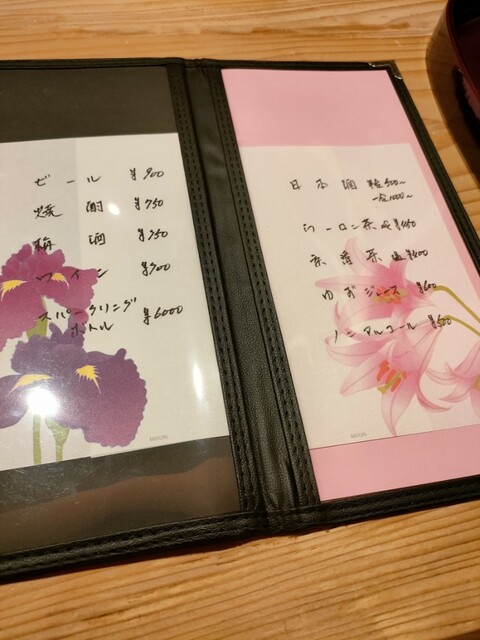 ビール ¥900
焼酎 ¥750
梅酒 ¥750
ワイン ¥900
スパークリング ¥6000
ボトル
日本酒 500〜
一合1000〜
ウーロン茶
茶 ¥400
ゆずジュース ¥600
ノンアルコール ¥600
MIDORI
MIDORI